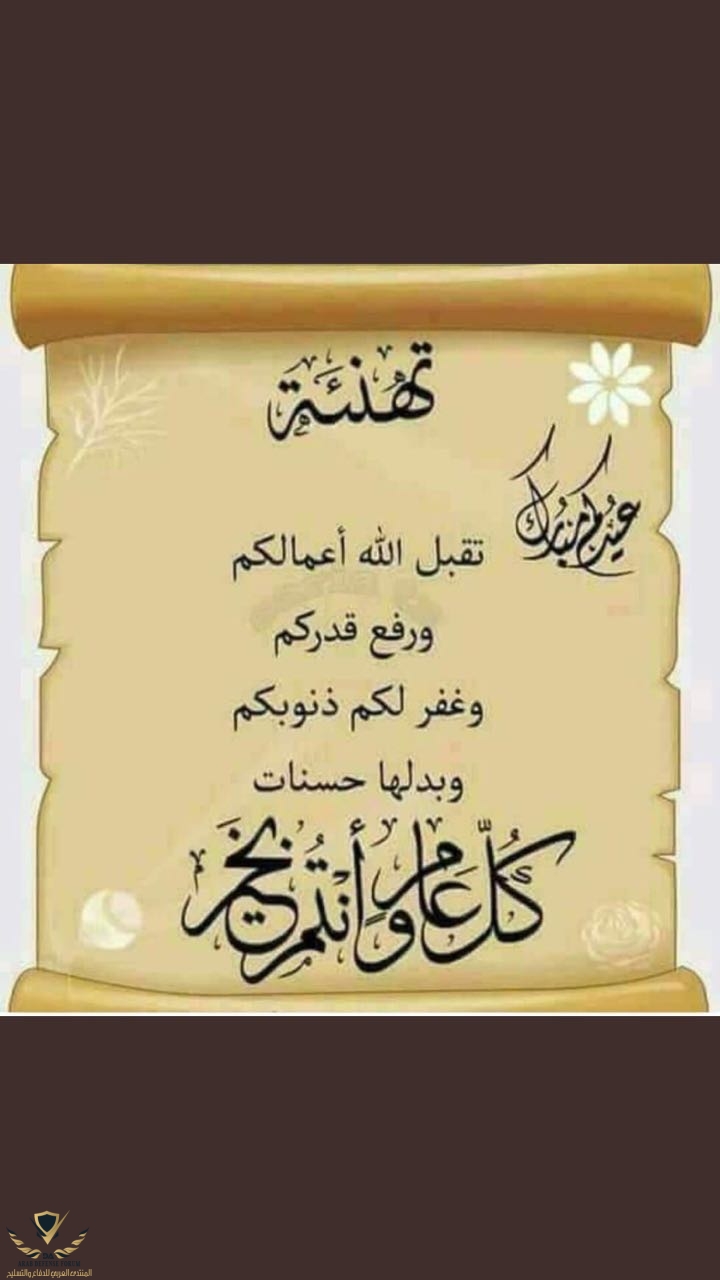 تهنئة
عيدكم مبارك
تقبل الله أعمالكم
ورفع قدركم
وغفر لكم ذنوبكم
وبدلها حسنات
كُلُّ عَامٍ وَأَنْتُم بِخَيْر
ARAB DEFENSE FORUM
المنتدى العربي للدفاع والتسليح